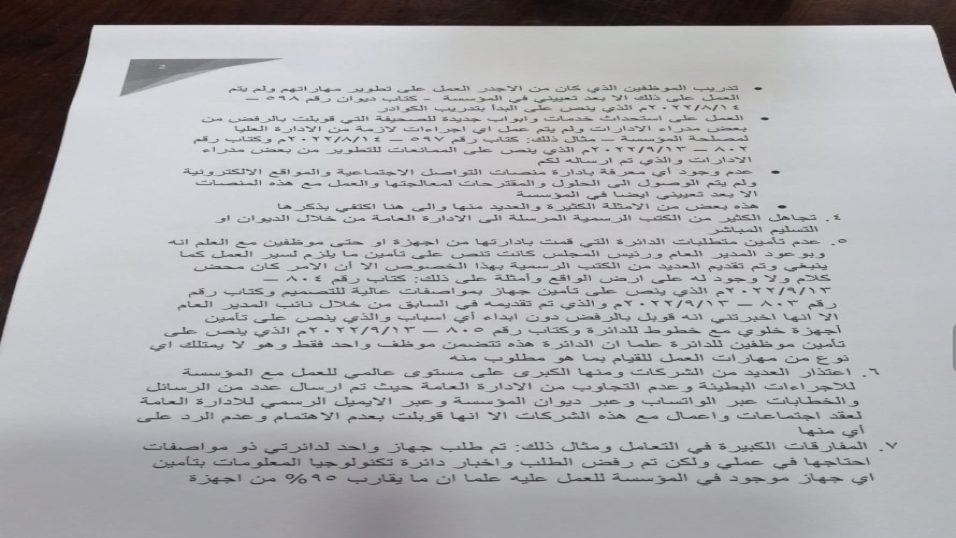 2
• تدريب الموظفين الذي كان من الاجدر العمل على تطوير مهاراتهم ولم يتم
العمل على ذلك الا بعد تعييني في المؤسسة - كتاب ديوان رقم ٥٩٨ –
٢٠٢٢/٨/١٤م الذي ينص على البدأ بتدريب الكوادر
• العمل على استحداث خدمات وابواب جديدة للصحيفة التي قوبلت بالرفض من
بعض مدراء الادارات ولم يتم عمل اي اجراءات لازمة من الادارة العليا
لمصلحة المؤسسة – مثال ذلك: كتاب رقم ٥٩٧ – ٢٠٢٢/٨/١٤م وكتاب رقم
٨٠٢ – ٢٠٢٢/٩/١٣م الذي ينص على الممانعات للتطوير من بعض مدراء
الادارات والذي تم ارساله لكم
• عدم وجود أي معرفة بادارة منصات التواصل الاجتماعية والمواقع الالكترونية
ولم يتم الوصول الى الحلول والمقترحات لمعالجتها والعمل مع هذه المنصات
الا بعد تعييني ايضا في المؤسسة
• هذه بعض من الامثلة الكثيرة والعديد منها والى هنا اكتفي بذكرها
٤. تجاهل الكثير من الكتب الرسمية المرسلة الى الادارة العامة من خلال الديوان او
التسليم المباشر
٥. عدم تأمين متطلبات الدائرة التي قمت بادارتها من اجهزة او حتى موظفين مع العلم انه
وبوعود المدير العام ورئيس المجلس كانت تنص على تأمين ما يلزم لسير العمل كما
ينبغي وتم تقديم العديد من الكتب الرسمية بهذا الخصوص الا أن الامر كان محض
كلام ولا وجود له على ارض الواقع وأمثلة على ذلك: كتاب رقم ٨٠٤ –
٢٠٢٢/٩/١٣م الذي ينص على تأمين جهاز بمواصفات عالية للتصميم وكتاب رقم
رقم ٨٠٣ – ٢٠٢٢/٩/١٣م والذي تم تقديمه في السابق من خلال نائب المدير العام
الا انها اخبرتني انه قوبل بالرفض دون ابداء أي اسباب والذي ينص على تأمين
أجهزة خلوي مع خطوط للدائرة وكتاب رقم ٨٠٥ – ٢٠٢٢/٩/١٣م الذي ينص على
تأمين موظفين للدائرة علما ان الدائرة هذه تتضمن موظف واحد فقط وهو لا يمتلك اي
نوع من مهارات العمل للقيام بما هو مطلوب منه
٦. اعتذار العديد من الشركات ومنها الكبرى على مستوى عالمي للعمل مع المؤسسة
للاجراءات البطيئة وعدم التجاوب من الادارة العامة حيث تم ارسال عدد من الرسائل
والخطابات عبر الواتساب وعبر ديوان المؤسسة وعبر الايميل الرسمي للادارة العامة
لعقد اجتماعات واعمال مع هذه الشركات الا انها قوبلت بعدم الاهتمام وعدم الرد على
أي منها
٧. المفارقات الكبيرة في التعامل ومثال ذلك: تم طلب جهاز واحد لدائرتي ذو مواصفات
احتاجها في عملي ولكن تم رفض الطلب واخبار دائرة تكنولوجيا المعلومات بتأمين
اي جهاز موجود في المؤسسة للعمل عليه علما ان ما يقارب ٩٥% من اجهزة